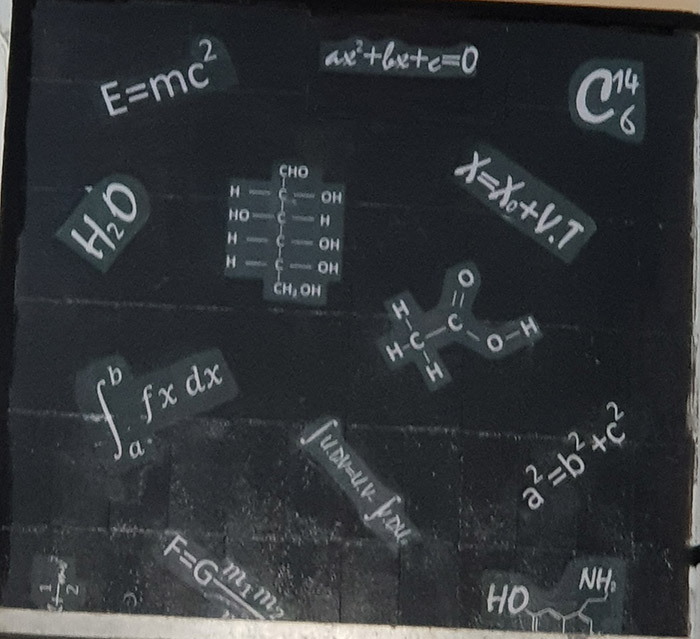 E=mc²
ax²+bx+c=0
C¹⁴₆
H₂O
CHO
H — C — OH
HO — C — H
H — C — OH
H — C — OH
CH₂OH
X=X₀+V.T
O
H C
H C O H
H
∫ₐᵇ fx dx
∫U.DV=U.V-∫
a²=b²+c²
F=G m₁m₂
1
2
HO NH₂